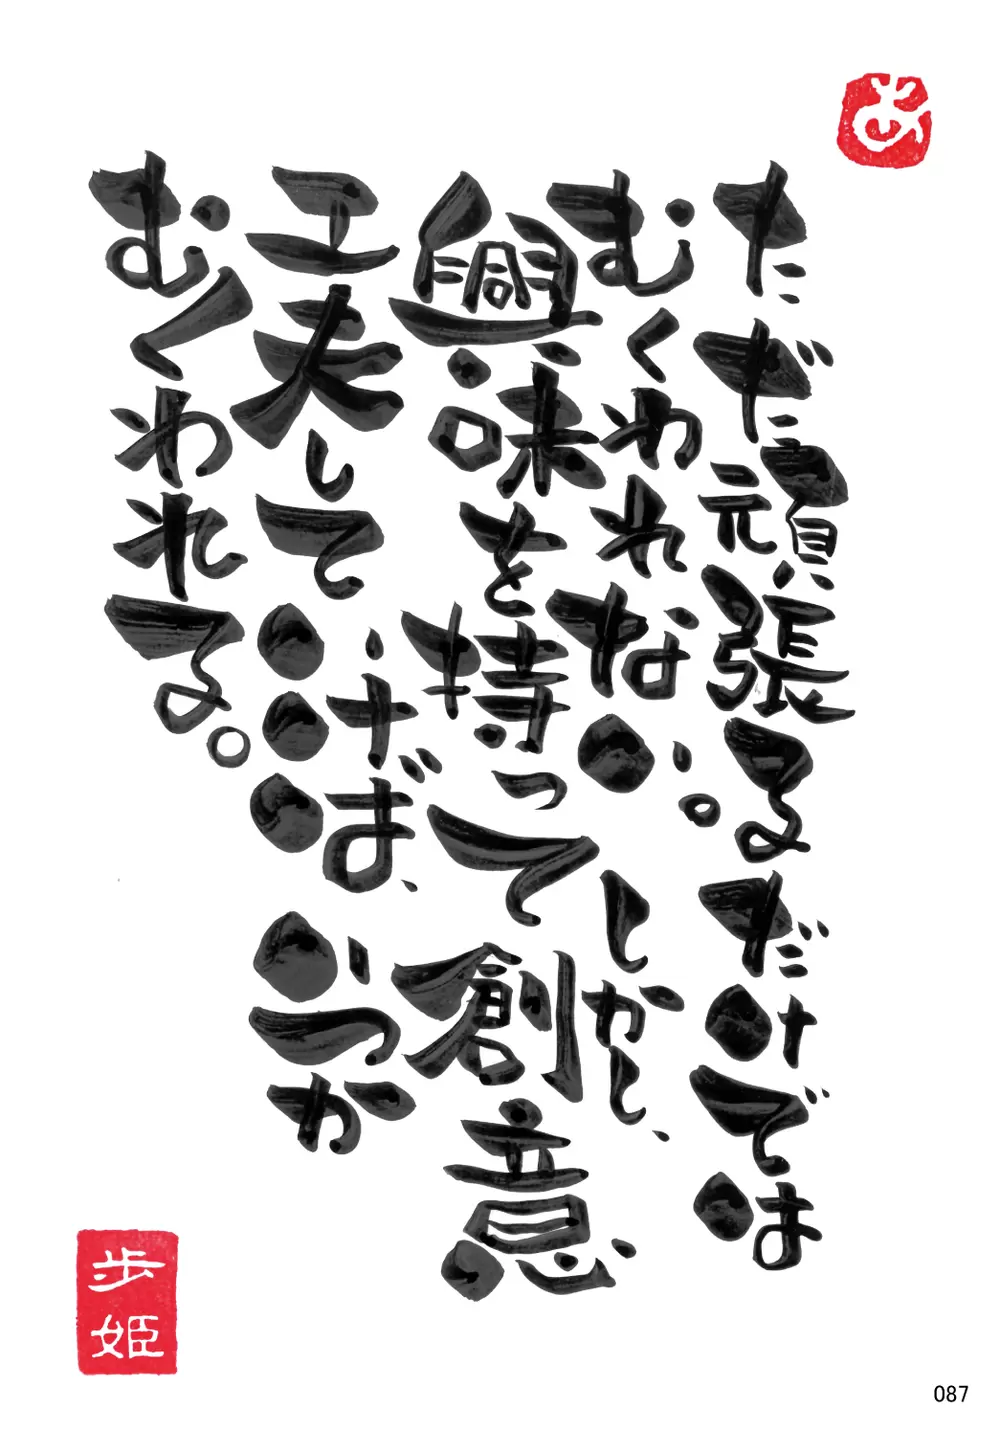 あ
ただ頑張るだけでは
むくわれない。しかし、
興味を持って創意
工夫していけば、いつか
むくわれる。
歩姫
087